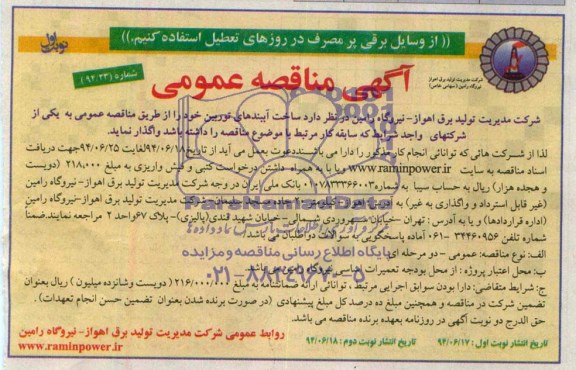 (( از وسایل برقی پر مصرف در روزهای تعطیل استفاده کنیم.))
نوبت اول
شرکت مدیریت تولید برق اهواز
نیروگاه رامین ( سهامی خاص )
آگهی مناقصه عمومی
شماره (۹۴،۲۳)
شرکت مدیریت تولید برق اهواز- نیروگاه رامین در نظر دارد ساخت آببندهای توربین خود را از طریق مناقصه عمومی به یکی از
شرکتهای واجد شرایط که سابقه کار مرتبط با موضوع مناقصه را داشته باشد واگذار نماید.
لذا از شرکت هائی که توانائی انجام کار مذکور را دارا می باشند دعوت بعمل می آید از تاریخ ۹۴/۰۶/۱۸ لغایت ۹۴/۰۶/۲۵ جهت دریافت
اسناد مناقصه به سایت www.raminpower.ir ویا با به همراه داشتن درخواست کتبی و فیش واریزی به مبلغ ۲۱۸،۰۰۰ (دویست
و هجده هزار) ریال به حساب سیبا به شماره ۰۱۰۷۸۳۳۳۶۶۰۰۳ بانک ملی ایران در وجه شرکت مدیریت تولید برق اهواز- نیروگاه رامین
(غیر قابل استرداد و واگذاری به غیر) به آدرس: اهواز شرکت مدیریت تولید برق اهواز-نیروگاه رامین
(اداره قراردادها) و یا به آدرس : تهران -خیابان سهروردی شمالی- خیابان شهید قندی(پالیزی)- پلاک ۶۷ واحد ۲ مراجعه نمایند.ضمناً
شماره تلفن ۳۴۴۶۰۹۵۶-۰۶۱ آماده پاسخگویی به سوالات داوطلبان می باشد.
الف: نوع مناقصه: عمومی - دو مرحله ای
ب: محل اعتبار پروژه : از محل بودجه تعمیرات اساسی نیروگاه می باشد
ج: شرایط متقاضی: دارا بودن سوابق اجرایی مرتبط ، توانائی ارائه ضمانتنامه به مبلغ ۲۱۶/۰۰۰/۰۰۰ ( دویست وشانزده میلیون ) ریال بعنوان
تضمین شرکت در مناقصه و همچنین مبلغ ده درصد کل مبلغ پیشنهادی (در صورت برنده شدن بعنوان تضمین حسن انجام تعهدات) .
حق الدرج دو نوبت آگهی در روزنامه بعهده برنده مناقصه می باشد.
تاریخ انتشار نوبت اول : ۹۴/۰۶/۱۷ تاریخ انتشار نوبت دوم : ۹۴/۰۶/۱۸
روابط عمومی شرکت مدیریت تولید برق اهواز- نیروگاه رامین
www.raminpower.ir
ParsNamadData
پایگاه اطلاع رسانی مناقصه و مزایده
۰۲۱-۸۸۳۴۹۶۷۰-۵